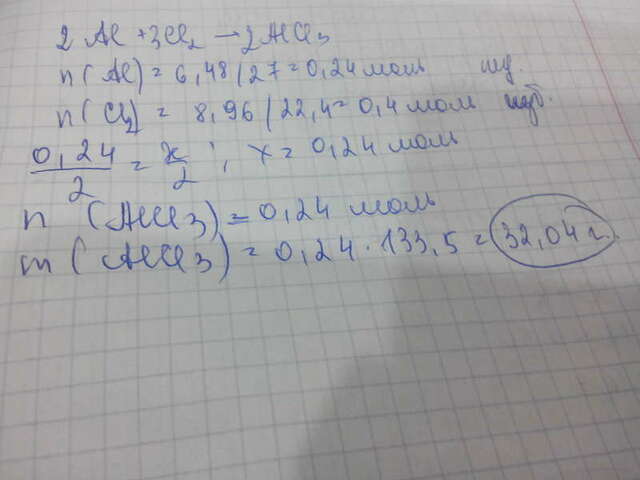 2Al + 3Cl2 → 2AlCl3
n(Al) = 6,48/27 = 0,24 моль
n(Cl2) = 8,96/22,4 = 0,4 моль изб.
0,24/2 = x/2; x = 0,24 моль
n (AlCl3) = 0,24 моль
m (AlCl3) = 0,24 · 133,5 = 32,04 г.